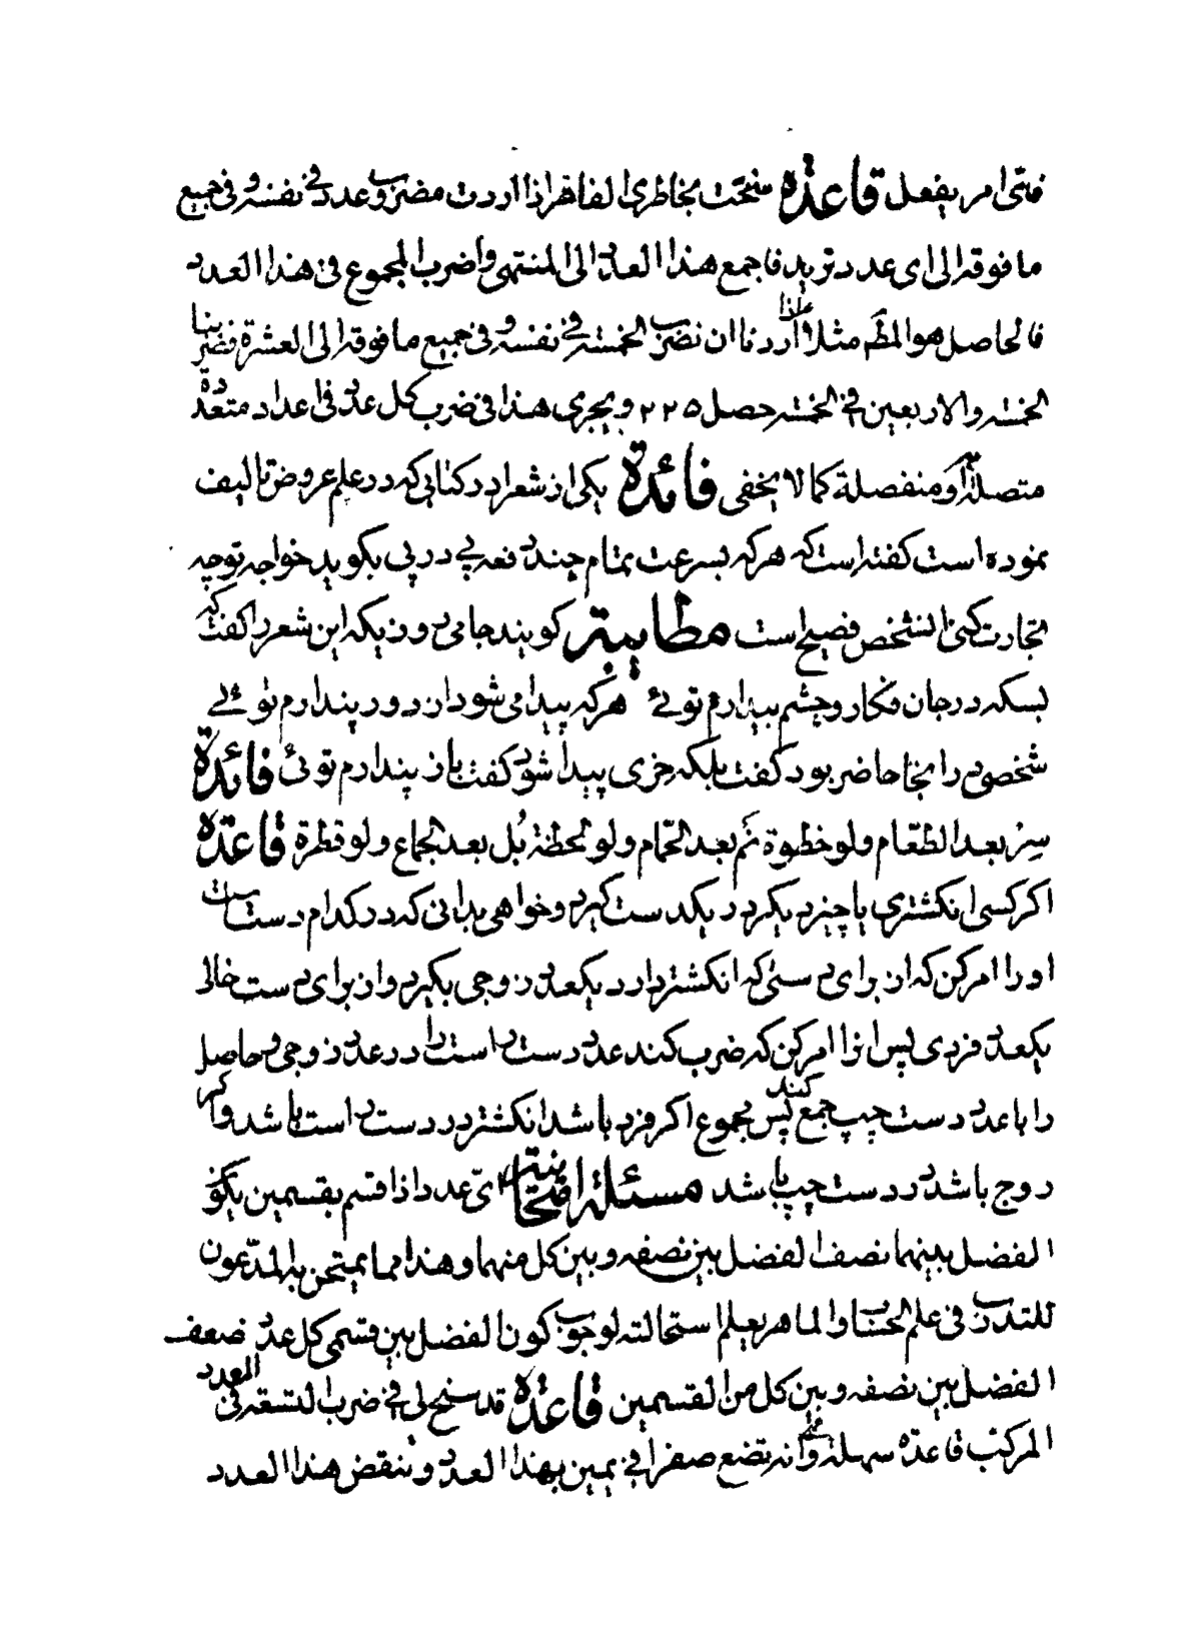 فتی امر یفعل قاعدة سنحت بخاطری الفاتر اذا اردت مضروب عدد فی نفسه و فی جمیع
ما فوقه الی ای عدد ترید فاجمع هذا العدد الی المنتهی واضرب المجموع فی هذا العدد
فالحاصل هو المط مثلا اذا اردنا ان نضرب الخمسة فی نفسه و فی جمیع ما فوقه الی العشرة فضربنا
الخمسة والاربعین فی الخمسة حصل ۲۲۵ و یجری هذا فی ضرب کل عدد فی اعداد متعددة
متصلة او منفصلة کما لا یخفی فائدة یکی از شعرا در کتابی که در علم عروض تالیف
نموده است کفته است که هر که بسرعت تمام چند دفعه پی در پی بکوید خواجه تو چه
تجارت کنی انشخص فصیح است مطایبة کویند جامی روزیکه این شعر را کفت که
بسکه در جان فکار و چشم بیدارم توئے هر که پیدا می شود از دور پندارم توئے
شخصی در انجا حاضر بود کفت بلکه خری پیدا شود کفت باز پندارم توئی فائدة
سِر بعد الطعام ولو خطوة نَم بعد الحمام ولو لحظة بُل بعد الجماع ولو قطرة قاعدة
اکر کسی انکشتری یا چیز دیکر در یکدست کیرد و خواهی بدانی که در کدام دست است
او را امر کن که از برای دستی که انکشتر دارد یکعدد زوجی بکیرد و از برای دست خالی
یکعدد فردی پس او را امر کن که ضرب کند عدد دست راست را در عدد زوجی و حاصل
را با عدد دست چپ جمع کند پس مجموع اکر فرد باشد انکشتر در دست راست باشد و اکر
زوج باشد در دست چپ باشد مسئلة امتحانیة ای عدد اذا قسم بقسمین یکون
الفضل بینهما نصف الفضل بین نصفه و بین کل منهما وهذا مما یمتحن به المدّعون
للتدرب فی علم الحساب والماهر یعلم استحالته لوجوب کون الفضل بین قسمی کل عدد ضعف
الفضل بین نصفه و بین کل من القسمین قاعدة قد سنح لی فی ضرب التسعة فی العدد
المرکب قاعدة سهلة وهی انه تضع صفرا فی یمین بهذا العدد و تنقض هذا العدد